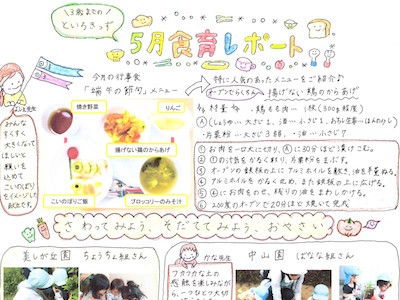 3歳までの
といろきっず
5月食育レポート
今月の行事食
「端午の節句」メニュー
特に人気のあったメニューをご紹介♪
オーブンでらくちん 揚げない鶏のからあげ
焼き野菜
りんご
揚げない鶏のからあげ
こいのぼりご飯
ブロッコリーのみそ汁
みんな
すくすく
大きくなって
ほしいと
願いを
込めて
こいのぼりを
イメージした
献立です。
材料 ・鶏もも肉…1枚(300g程度)
・片栗粉…大さじ3
①お肉を一口大に切り、Ⓐに30分ほど漬けこむ。
②①の汁気をかるく取り、片栗粉をまぶす。
③オーブンの鉄板の上にアルミホイルを敷き、油を
④アルミホイルをかるく丸め、また鉄板の上に広げる。
⑤④にお肉をのせ、残りの油をまわしかける。
⑥200度のオーブンで20分ほど焼いて完成
さわってみよう、そだててみよう、おやさい
美しが丘園 ちょうちょ組さん
かな先生
中山園 ばなな組さん
フカフカな土の
感触を楽しみなが
ら、一つひとつ大切